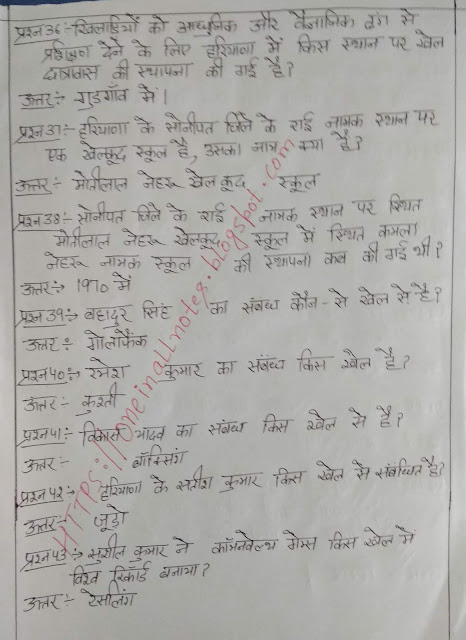 प्रश्न36:- खिलाड़ियों को आधुनिक और वैज्ञानिक ढंग से
प्रशिक्षण देने के लिए हरियाणा में किस स्थान पर खेल
छात्रावास की स्थापना की गई है?
उत्तर:- गुडगाँव में।
प्रश्न37:- हरियाणा के सोनीपत जिले के राई नामक स्थान पर
एक खेलकूद स्कूल है, उसका नाम क्या है?
उत्तर:- मोतीलाल नेहरू खेल कूद स्कूल
प्रश्न38:- सोनीपत जिले के राई नामक स्थान पर स्थित
मोतीलाल नेहरू खेलकूद स्कूल में स्थित कमला
नेहरू नामक स्कूल की स्थापना कब की गई थी?
उत्तर:- 1970 में
प्रश्न39:- बहादुर सिंह का संबंध कौन-से खेल से है?
उत्तर:- गोलाफेंक
प्रश्न40:- रमेश कुमार का संबंध किस खेल है?
उत्तर:- कुश्ती
प्रश्न41:- विकास यादव का संबंध किस खेल से है?
उत्तर:- बॉक्सिंग
प्रश्न42:- हरियाणा के सतीश कुमार किस खेल से संबंधित है?
उत्तर:- जूडो
प्रश्न43:- सुशील कुमार ने कॉमनवेल्थ गेम्स किस खेल में
विश्व रिकॉर्ड बनाया?
उत्तर:- रेसलिंग
HTTPS://oneinallnotes.blogspot.com